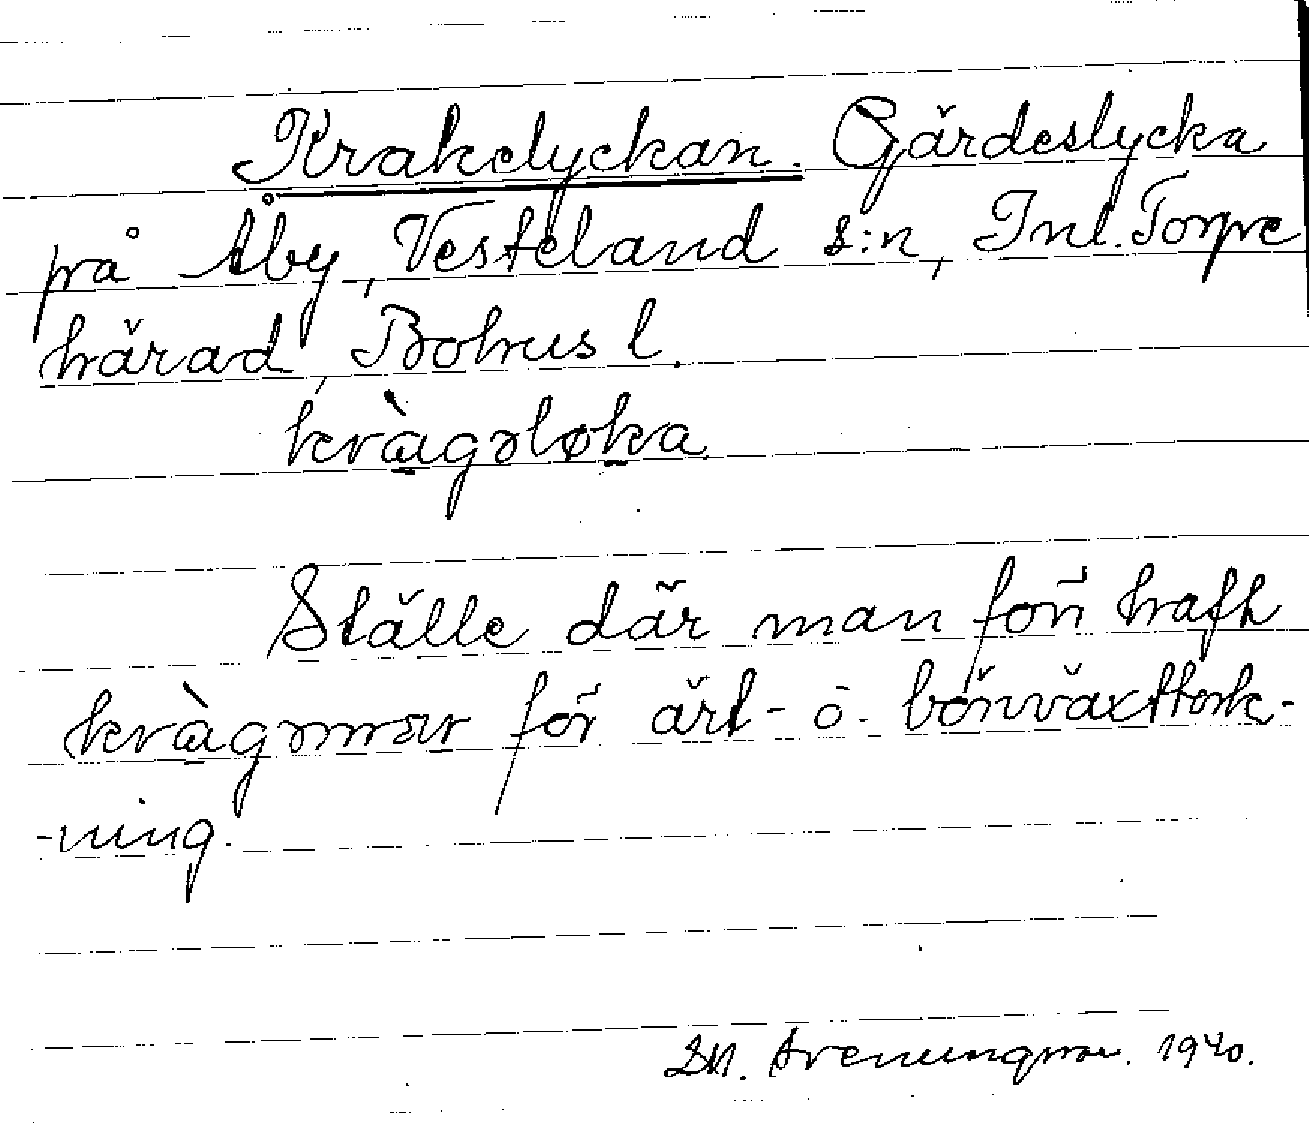 Krakelyckan. Gärdeslycka
på Åby, Vesteland s:n, Inl. Torpe
härad, Bohus l.
kràgəløka
Ställe där man förr haft
för ärt- o. bönväxttork-
-ning.
1940.